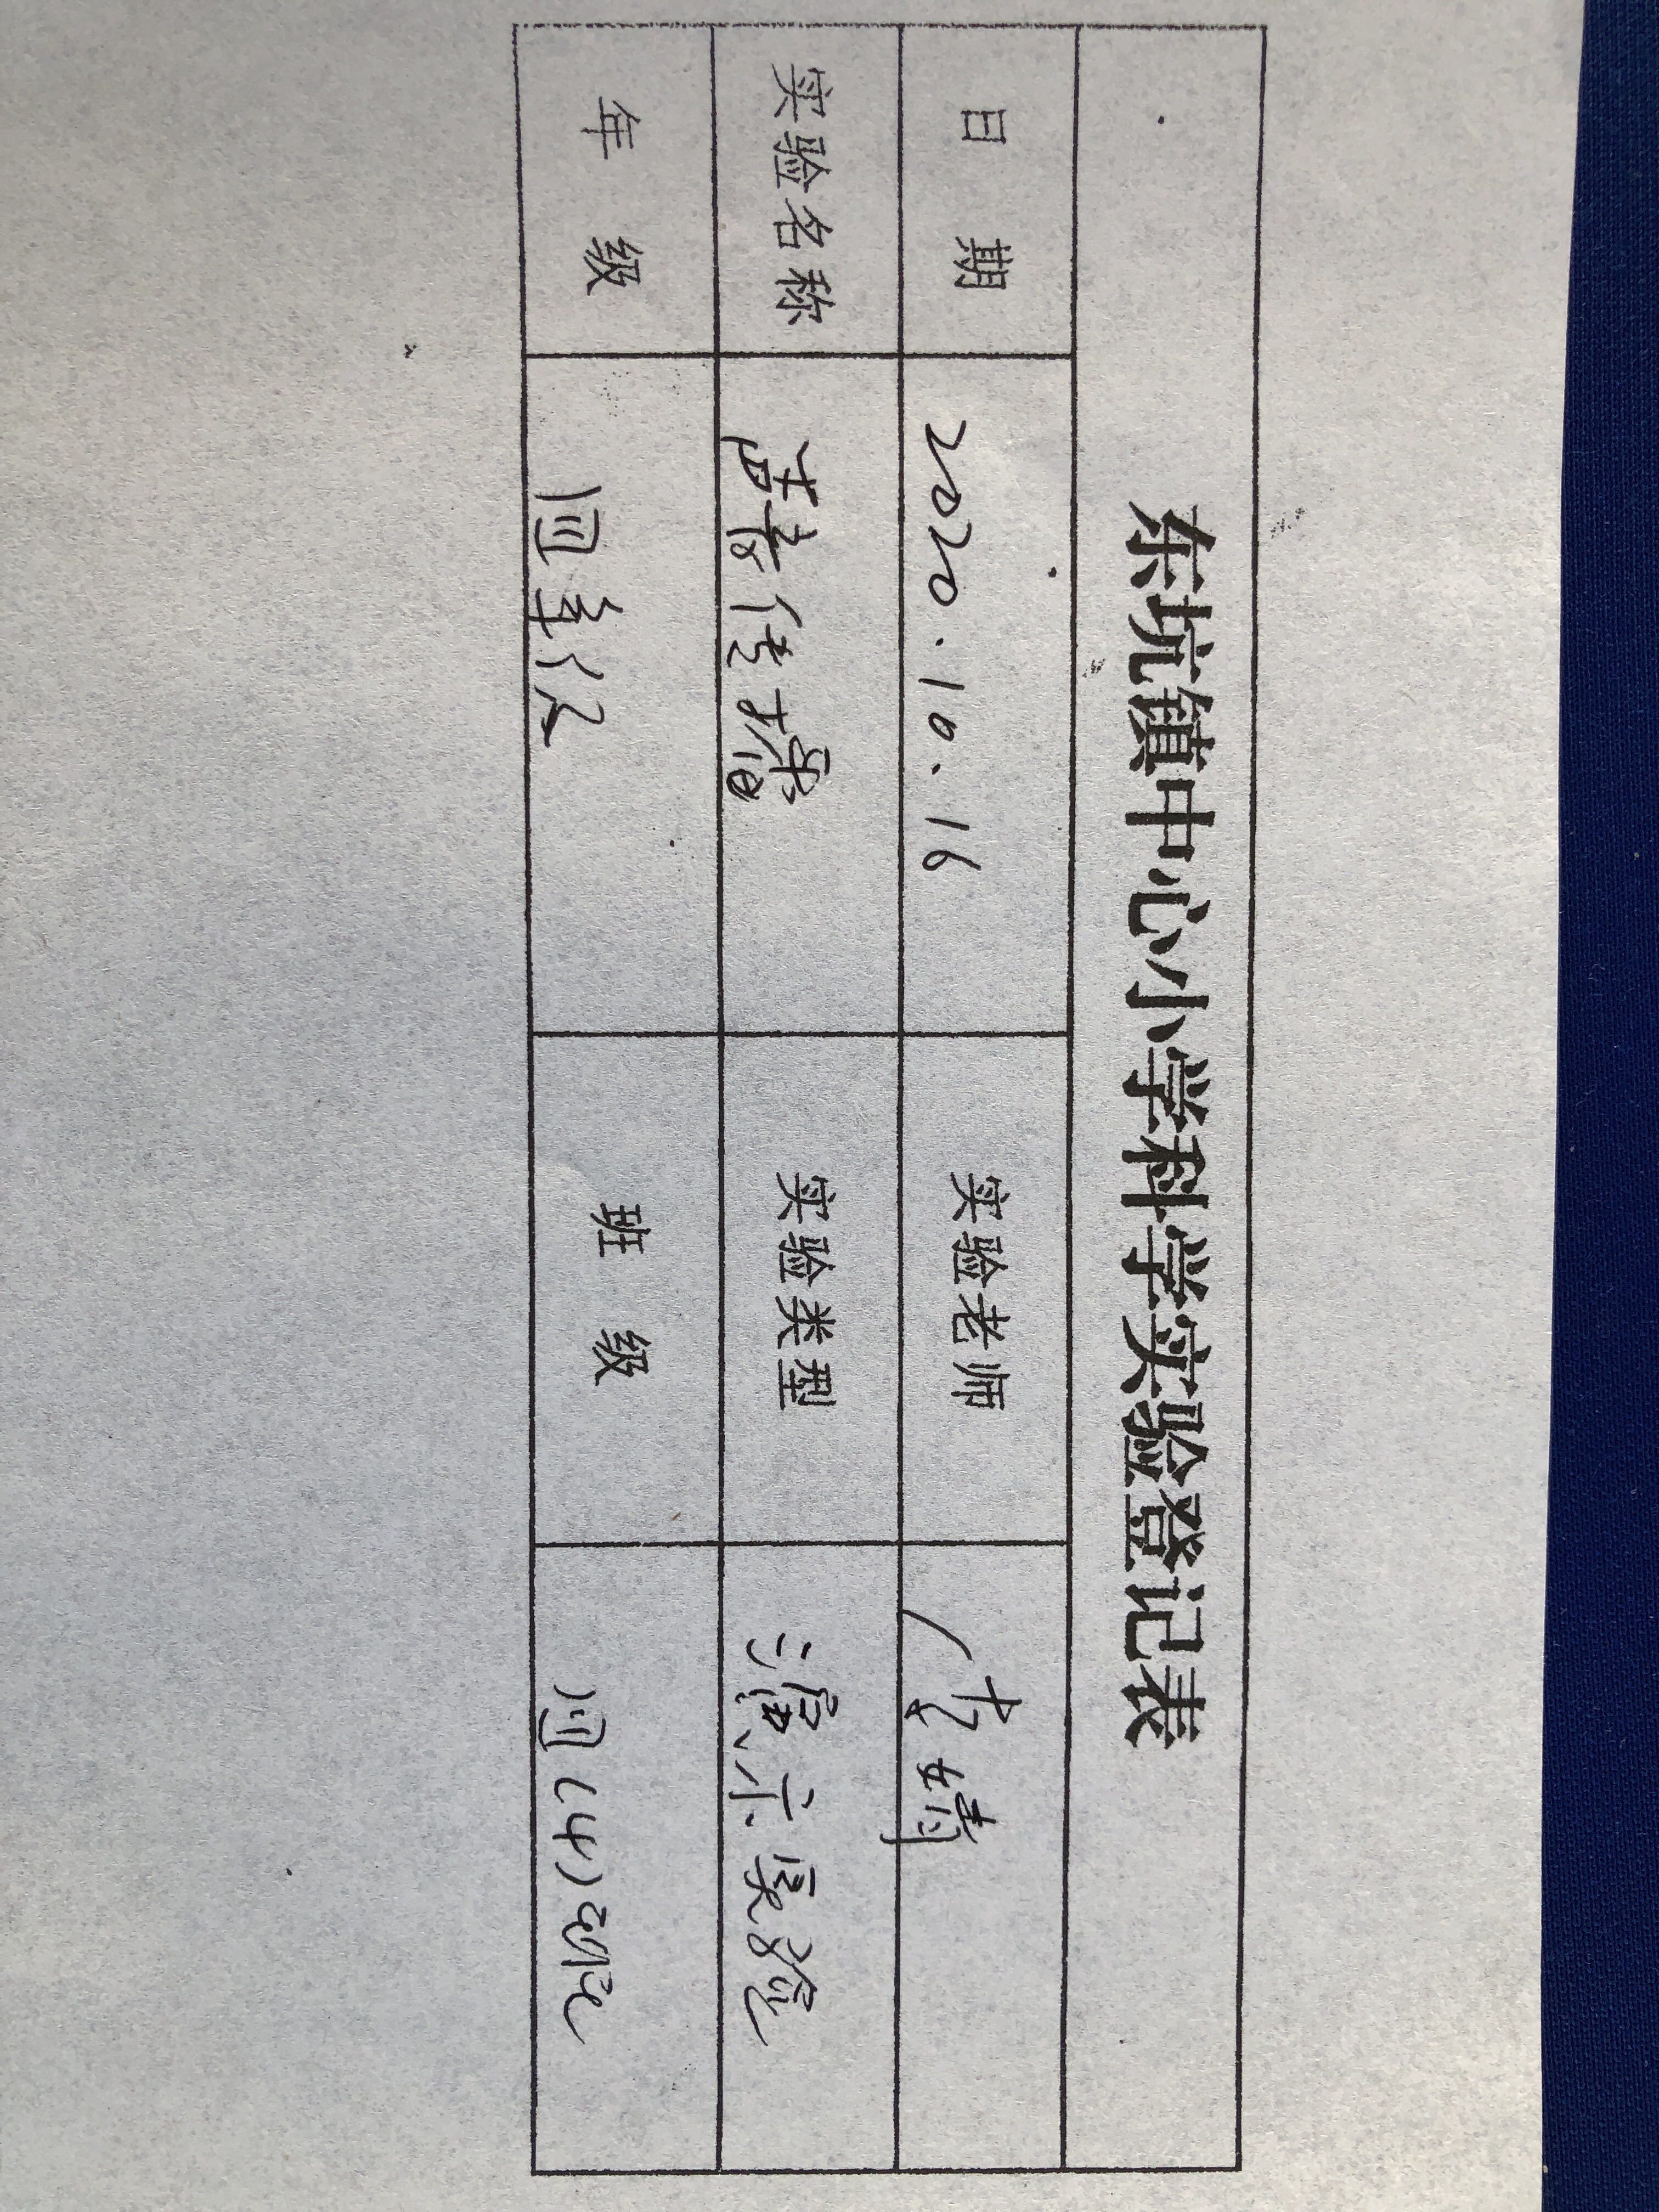 东坑镇中心小学科学实验登记表
日 期 2020.10.16 实验老师 婧
实验名称 声音传播 实验类型 演示实验
年 级 四年级 班 级 四(4)班